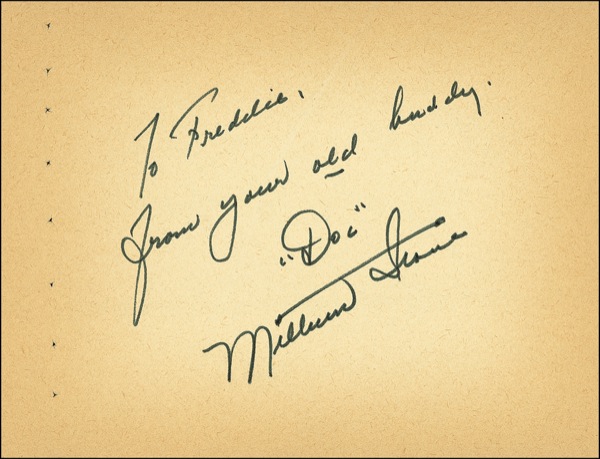 To Freddie,
from your old buddy.
"Doc"
Milburn Stone